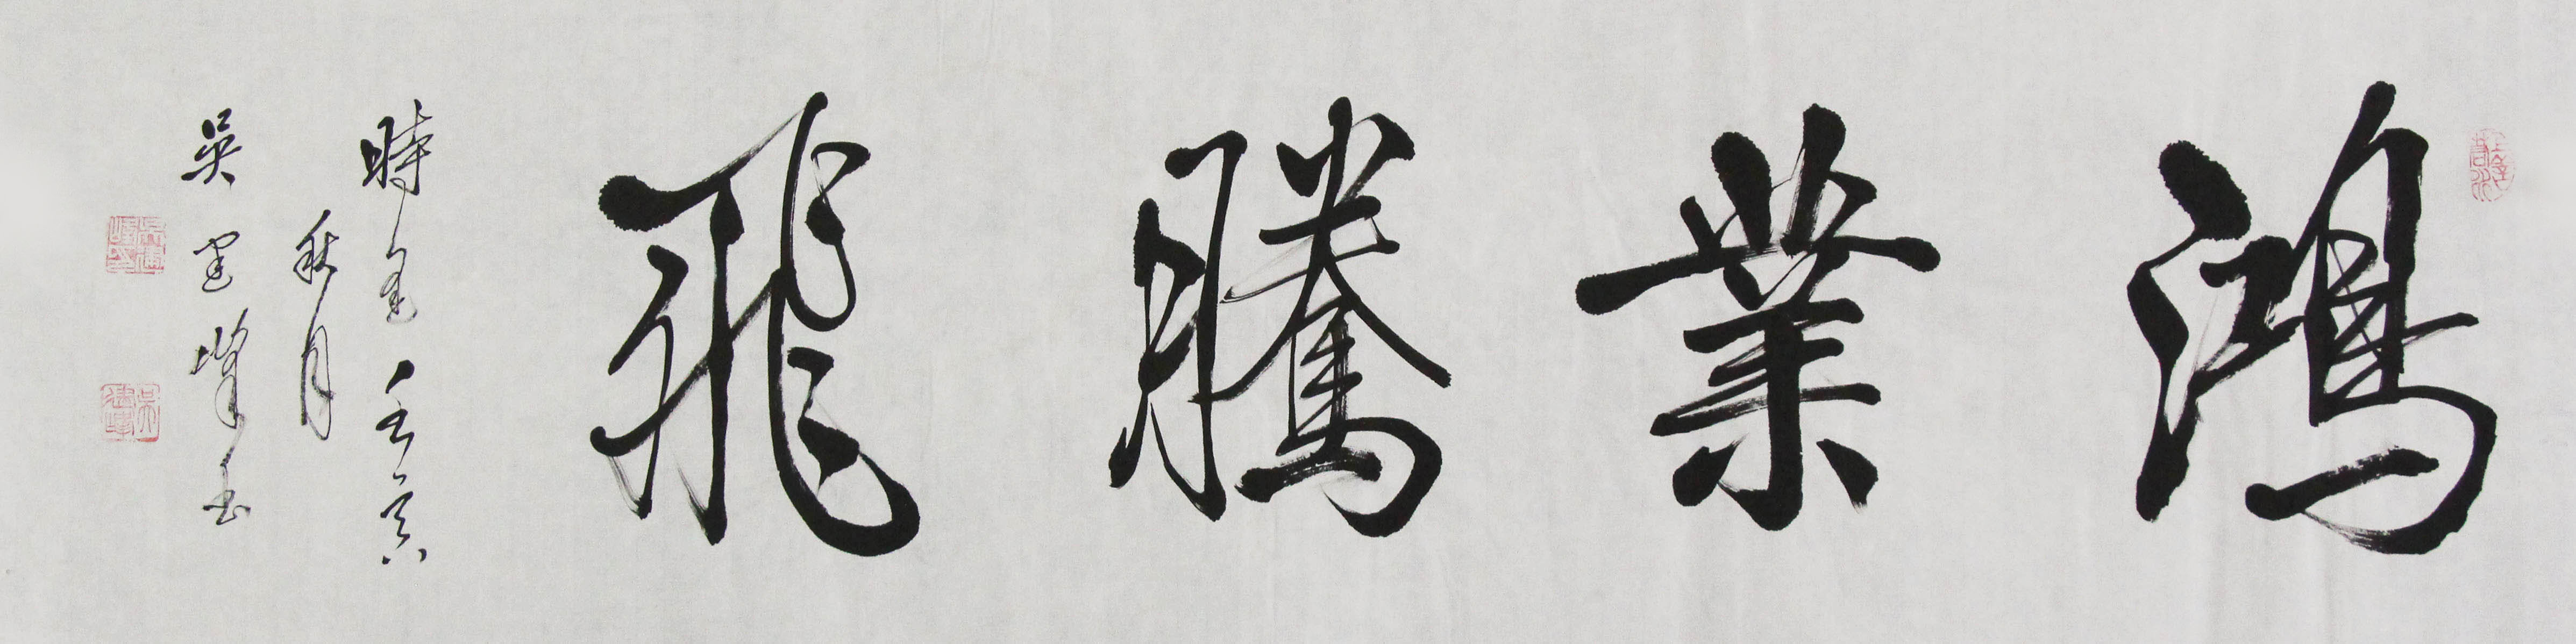 鴻業騰飛
時在壬寅
秋月
吳建峰書